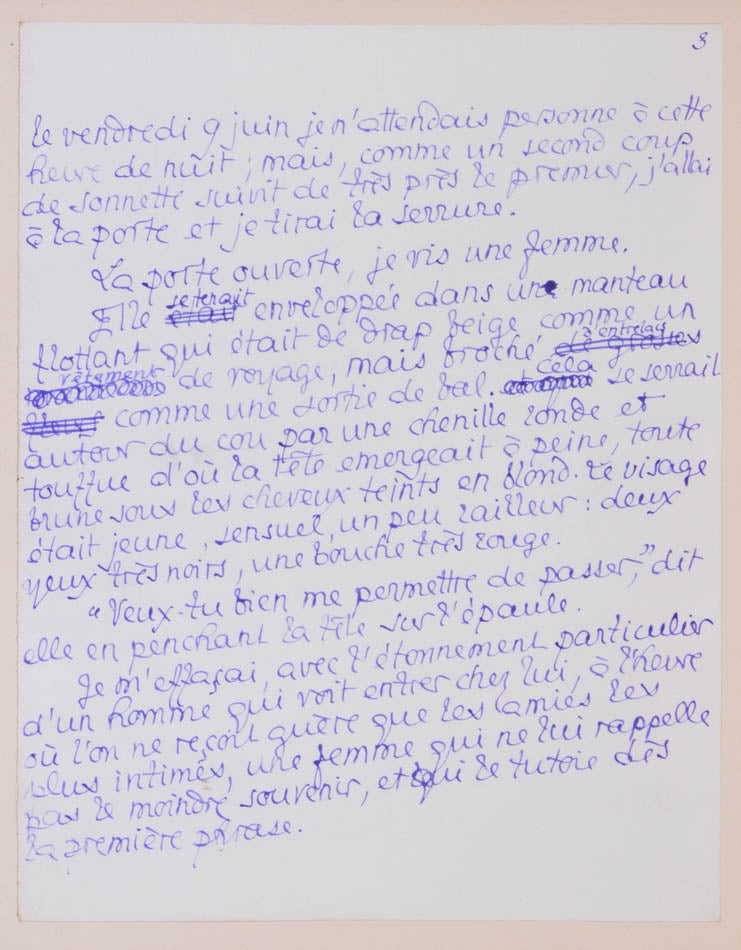 3
le vendredi 9 juin je n'attendais personne à cette
heure de nuit ; mais, comme un second coup
de sonnette suivit de très près le premier, j'allai
à la porte et je tirai la serrure.
La porte ouverte, je vis une femme.
Elle se tenait enveloppée dans un manteau
flottant qui était de drap beige comme un
vêtement de voyage, mais broché à entrelacs
comme une sortie de bal. Cela se serrait
autour du cou par une chenille ronde et
touffue d'où la tête émergeait à peine, toute
brune sous les cheveux teints en blond. Le visage
était jeune, sensuel, un peu railleur : deux
yeux très noirs, une bouche très rouge.
"Veux-tu bien me permettre de passer," dit
elle en penchant la tête sur l'épaule.
Je m'effaçai, avec l'étonnement particulier
d'un homme qui voit entrer chez lui, à l'heure
où l'on ne reçoit guère que les amies les
plus intimes, une femme qui ne lui rappelle
pas le moindre souvenir, et qui le tutoie dès
la première phrase.